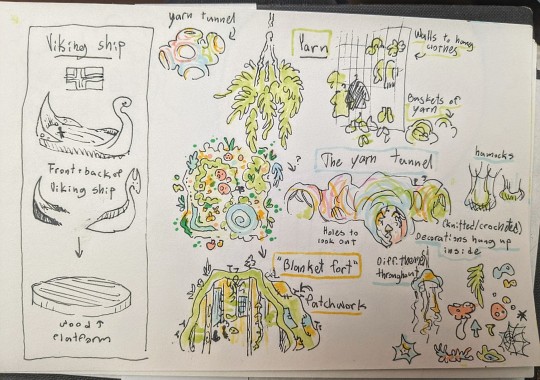 Viking ship
Front + back of
Viking ship
wood
platform
yarn tunnel
Yarn
Walls to hang
clothes
Baskets of
yarn
The yarn tunnel
Holes to
look out
hamocks
(knitted/crocheted)
Decorations hung up
inside
"Blanket fort"
Patchwork
Diff. themes
throughout